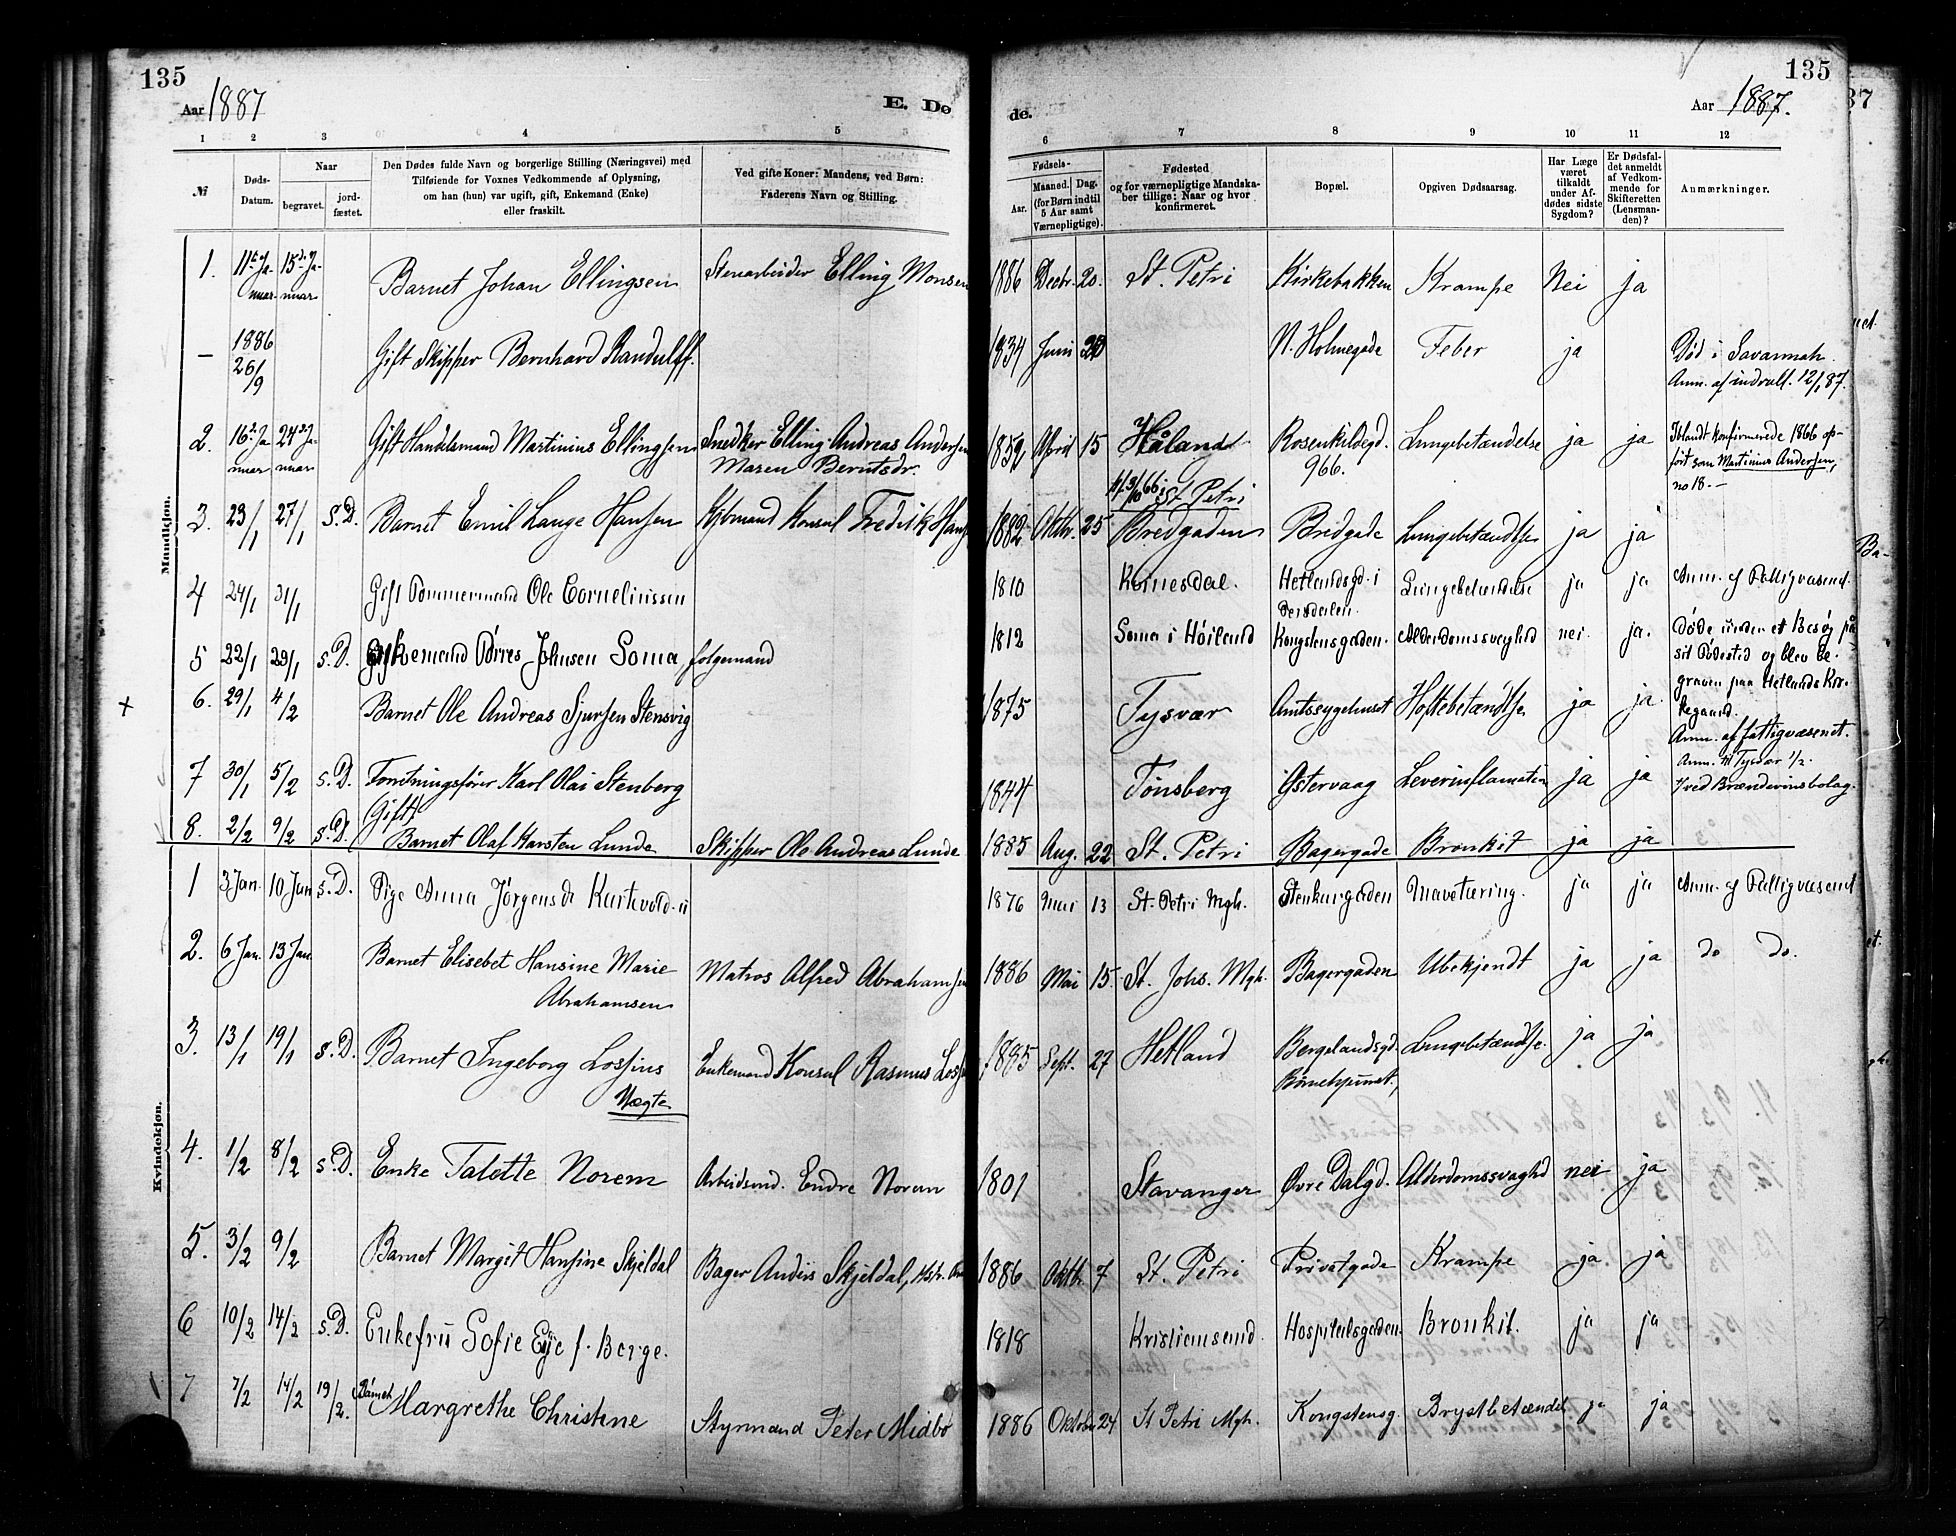 135
Aar 1887
E. Dø
1 2 3 4 5
№
Døds-
Datum.
Naar
begravet.
jord-
fæstet.
Den Dødes fulde Navn og borgerlige Stilling (Næringsvei) med
Tilføiende for Voxnes Vedkommende af Oplysning,
om han (hun) var ugift, gift, Enkemand (Enke)
eller fraskilt.
Ved gifte Koner: Mandens, ved Børn:
Faderens Navn og Stilling.
Mandkjøn.
1. 11te Ja- 15de Ja- Barnet Johan Ellingsen Stenarbeider Elling Monsen
nuar nuar
– 1886 Gift Skipper Bernhard Randulff.
26/9
2. 16de Ja 24de Ja- Gift Handelsmand Martinius Ellingsen Snedker Elling Andreas Andersen
nuar nuar Maren Berntsdr.
3. 23/1 27/1 s.D. Barnet Emil Lange Hansen Kjøbmand Konsul Fredrik Hansen
4 24/1 31/1 Gift Tømmermand Ole Corneliussen
5 22/1 29/1 s.D. Enkemand Tørres Johnsen Soma, folgemand
+ 6. 29/1 4/2 Barnet Ole Andreas Sjursen Stensvig
7 30/1 5/2 s.D. Forretningsfører Karl Olai Stenberg
Gift
8. 2/2 9/2 s.D. Barnet Olaf Karsten Lunde Skipper Ole Andreas Lunde
Kvindekjøn.
1 3 Jan. 10 Jan s.D. Pige Anna Jörgensdr
2. 6 Jan. 13 Jan. Barnet Elisebet Hansine Marie Matros Alfred Abrahamsen
Abrahamsen
3. 13/1 19/1 s.D. Barnet Ingeborg Lossius Enkemand Konsul Rasmus
Uægte
4. 1/2 8/2 s.D. Enke Talette Norem Arbeidsmd. Endre Norem
5. 3/2 9/2 Barnet Margit Hansine Skjeldal Bager Andùs Skjeldal,
6 10/2 14/2 s.D. Enkefru Sofie Eÿe f. Berge.
7 7/2 14/2 19/2. Barnet Margrethe Christine Styrmand Peter Midbø
135
de.
Aar 1887.
6 7 8 9 10 11 12
Fødsels-
Aar. Maaned. Dag.
(for Børn indtil
5 Aar samt
Værnepligtige).
Fødested
og for værnepligtige Mandska-
ber tillige: Naar og hvor
konfirmeret.
Bopæl.
Opgiven Dødsaarsag.
Har Læge
været
tilkaldt
under Af-
dødes sidste
Sygdom?
Er Dødsfal-
det anmeldt
af Vedkom-
mende for
Skifteretten
(Lensman-
den)?
Anmærkninger.
1886 Decbr. 20. St. Petri Kirkebakken Krampe Nei ja
1834 Juni N. Holmegade Feber ja Død i Savannah.
Anm. af indrull. 12/1 87.
1852 April 15 Håland Rosenkildegd. Lungebetændelse ja ja Iblandt konfirmerede 1866 op-
966. ført som Martinius Andersen,
66 i St. Petri no 18. –
1882 Oktbr. 25 Bredgaden Bredgade Lungebetændelse ja ja
1810 Kvinesdal. Hetlandsgd. i Lungebetændelse ja ja Anm. af Fattigvæsenet.
1812 Soma i Höiland Kongstensgaden. Alderdomssvaghed nei. ja. Døde under et Besøg på
sit Födested og blev be-
graven paa Hetlands Kir-
kegaard.
1875 Tysvær Amtssygehuset Hoftebetændelse ja ja Anm. af fattigvæsenet.
Anm. til Tysvær 1/2.
1844 Tønsberg Østervaag Leverinflamation ja ja v ved Brændevinsbolag.
1885 Aug. 22 St. Petri Bagergade Bronkit ja ja
1876 Mai 13 St. Petri Mgh. Stenkargaden Mavetæring. ja ja Anm. af Fattigvæsenet
1886 Mai 15. St. Johs. Mgh. Bagergaden Ubekjendt ja ja do do.
1885 Sept. 27 Hetland Bergelandsgd. Lungebetændelse. ja ja
Børnehjemet.
1801 Stavanger Øvre Dalgd. Alderdomssvaghed nei ja
1886 Oktbr. 7 St. Petri Privatgade Krampe ja ja
1818 Kristiansand. Hospitalsgaden. Bronkit. ja ja
1886 Oktober 24 St Petri Mgh. Kongstensg. Brystbetændel ja ja